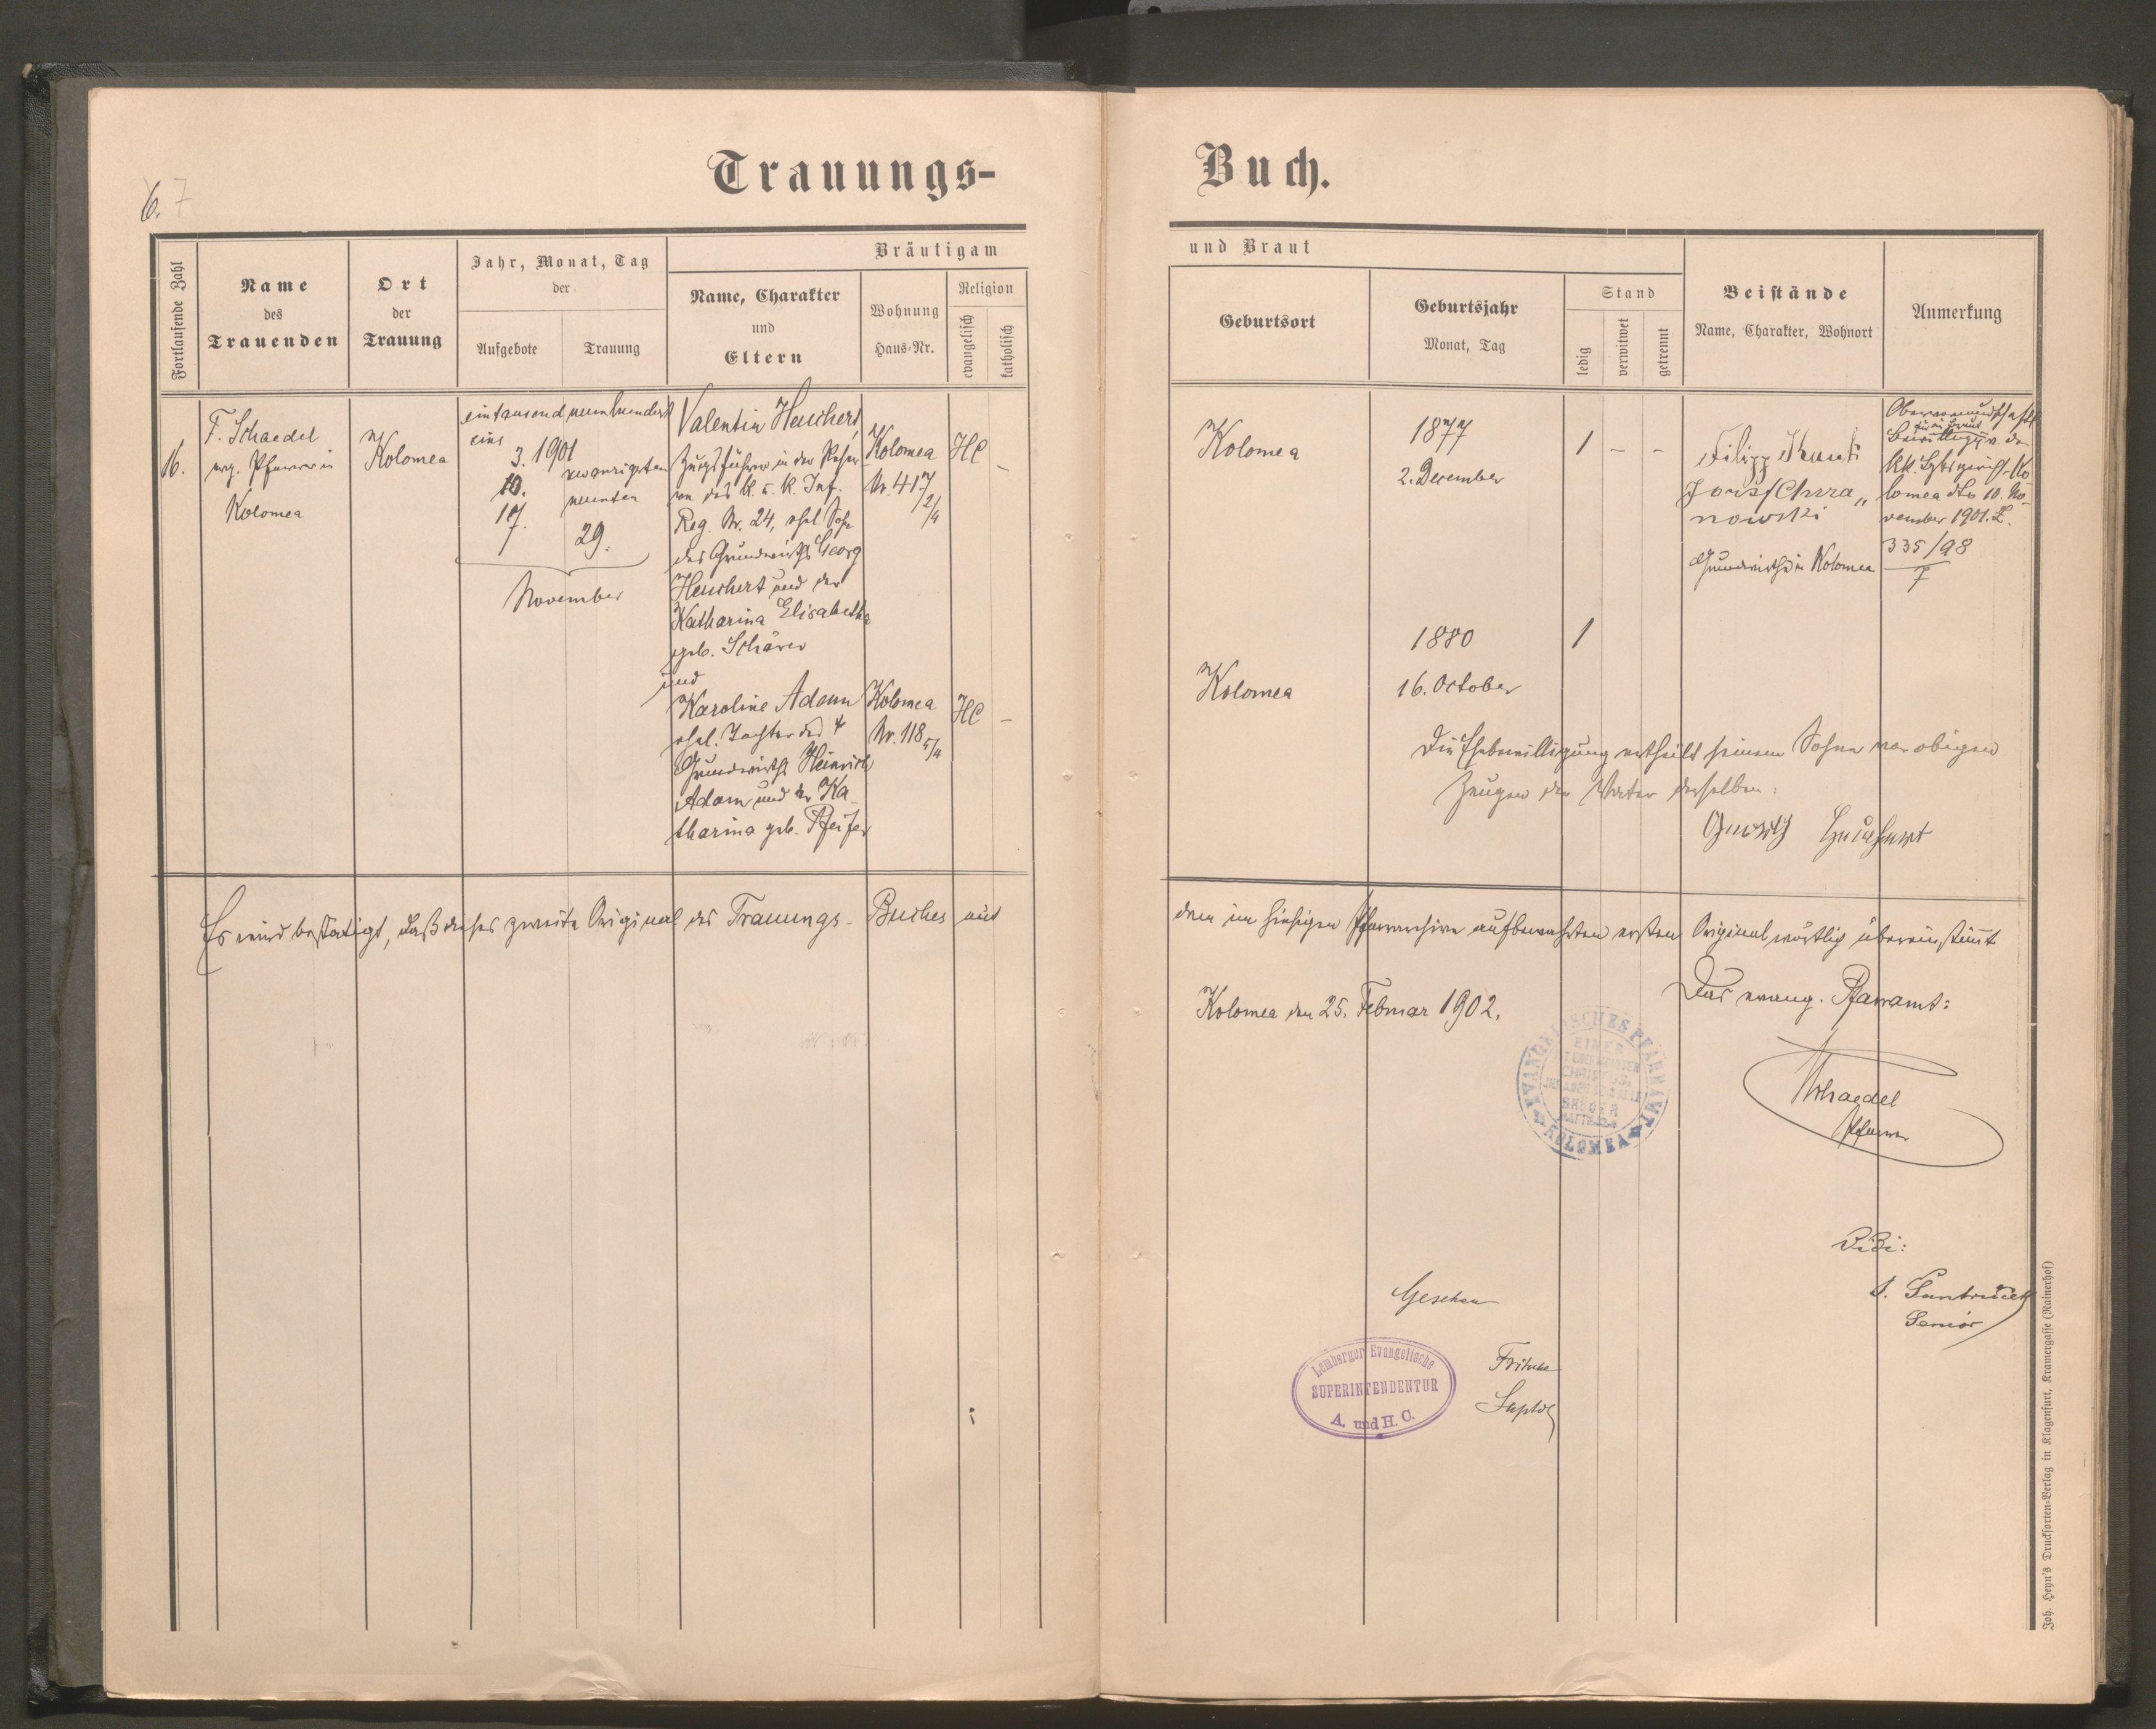 6. 7
Trauungs-
Buch.
Fortlaufende Zahl
Name
des
Trauenden
Ort
der
Trauung
Jahr, Monat, Tag
der
Aufgebote
Trauung
Bräutigam
Name, Charakter
und
Eltern
Wohnung
Haus-Nr.
Religion
evangelisch
katholisch
und Braut
Geburtsort
Geburtsjahr
Monat, Tag
Stand
ledig
verwitwet
getrennt
Beistände
Name, Charakter, Wohnort
Anmerkung
16.
F. Schaedel
evg. Pfarrer in
Kolomea
Kolomea
eintausend neunhundert
eins
3. 1901
10.
17.
zwanzigsten
neunten
29.
November
Valentin Heuchert,
Zugsführer in der Reser
ve des k. u. k. Inf.
Reg. Nr. 24, ehel. Sohn
des Grundwirths Georg
Heuchert und der
Katharina Elisabetha
geb. Schärer
und
Karoline Adam
ehel. Tochter des †
Grundwirths Heinrich
Adam und der Ka-
tharina geb. Pfeifer
Kolomea
Nr. 417
2/4
HC
–
Kolomea
Nr. 118 5/4
HC –
Kolomea
1877
2. December
1 – –
Filipp
nowski
Grundwirthe in Kolomea
Obervormundschaftl
für die Braut
Bewilligg v. dem
kk. Bzksgericht Ko
lomea dto 10. No-
vember 1901. Z.
335/98
7
1880
1
Kolomea
16. October
Die Ehebewilligung ertheilt seinem Sohne vor obigen
Zeugen der Vater desselben:
Heuchert
Es wird bestätigt, daß dieses zweite Original des Trauungs-Buches mit
dem im hiesigen Pfarrarchive aufbewahrten ersten Original wörtlich übereinstimmt
Kolomea den 25. Februar 1902.
Das evang. Pfarramt:
EVANGELISCHES PFARRAMT
KOLOMEA
EINER
CHRISTUS
BRÜDER
Schaedel
Pfarrer
Vidi:
Senior
Gesehen
Lemberger Evangelische
SUPERINTENDENTUR
A. und H. C.
Fritsche
Suptdt
Joh. Heyn's Drucksorten-Verlag in Klagenfurt, Kramergasse (Rainerhof)